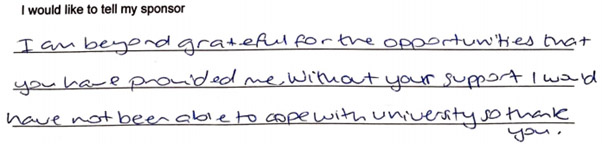 I would like to tell my sponsor
I am beyond grateful for the opportunities that
you have provided me. Without your support I would
have not been able to cope with university so thank
you.